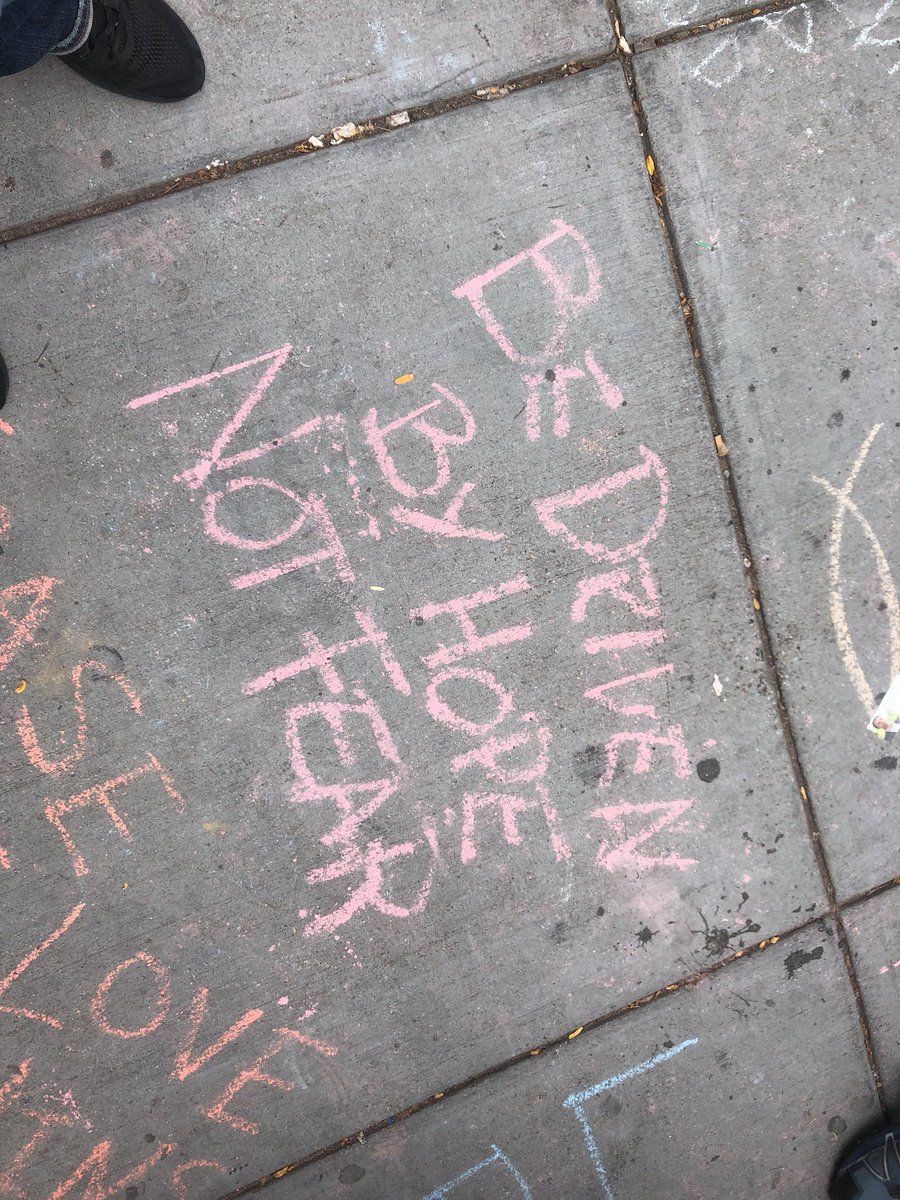 BE DRIVEN
BY HOPE
NOT FEAR
LOVE